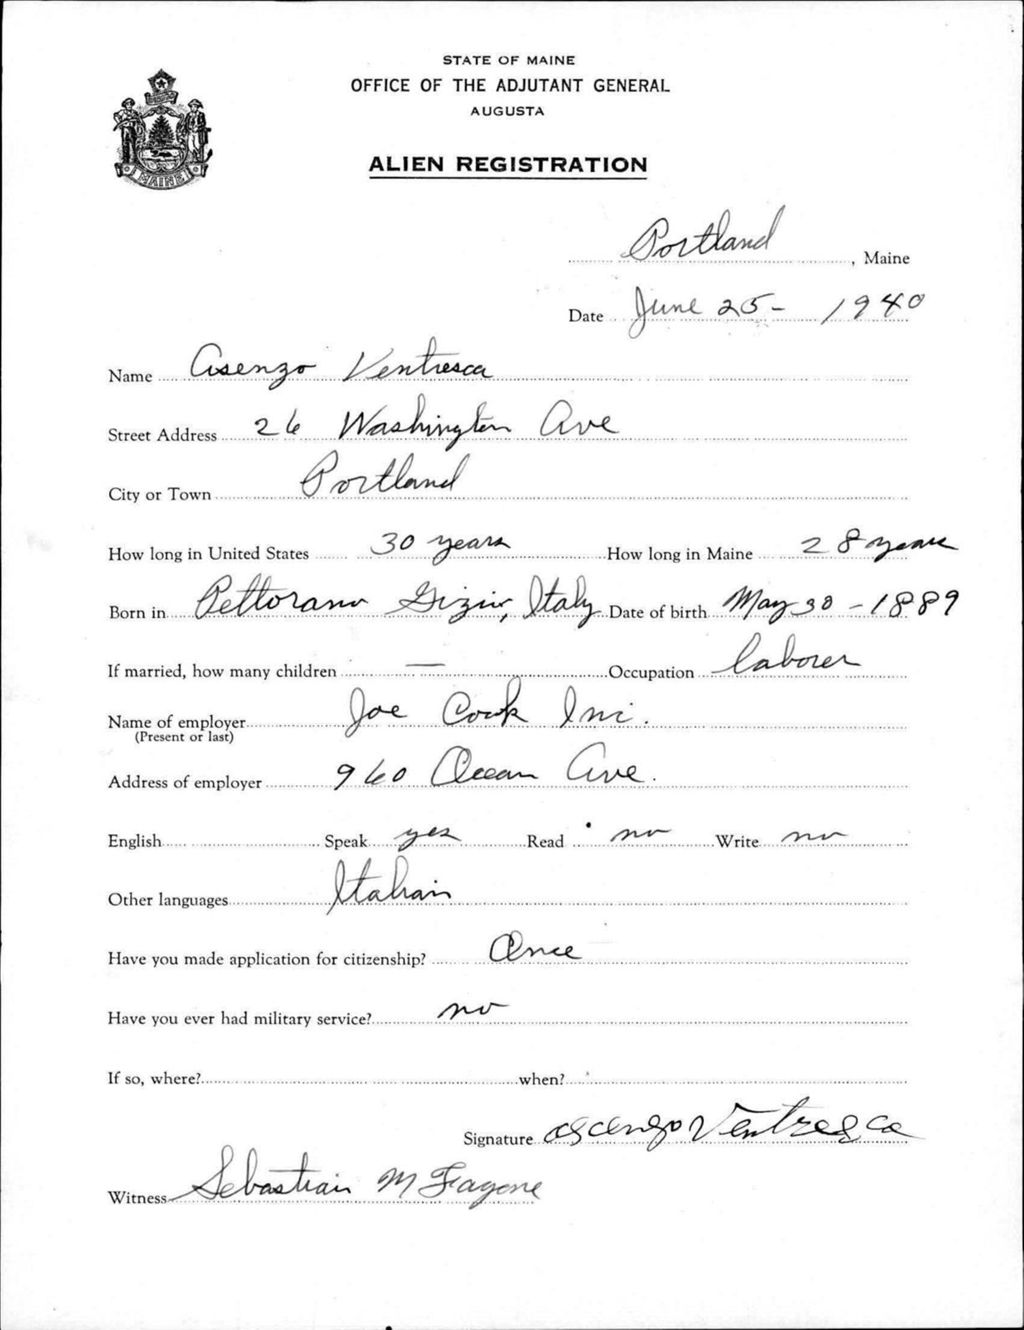 STATE OF MAINE
OFFICE OF THE ADJUTANT GENERAL
AUGUSTA
MAINE
ALIEN REGISTRATION
Portland, Maine
Date June 25 - 1940
Name Asenzo Ventresca
Street Address 26 Washington Ave
City or Town Portland
How long in United States 30 years How long in Maine 28 years
Born in Pettorano Gizio, Italy Date of birth May 30 - 1889
If married, how many children — Occupation laborer
Name of employer Joe Cook Inc.
(Present or last)
Address of employer 960 Ocean Ave.
English Speak yes Read no Write no
Other languages Italian
Have you made application for citizenship? Once
Have you ever had military service? no
If so, where? when?
Signature Ascenzo Ventresca
Witness Sebastian M Fagone